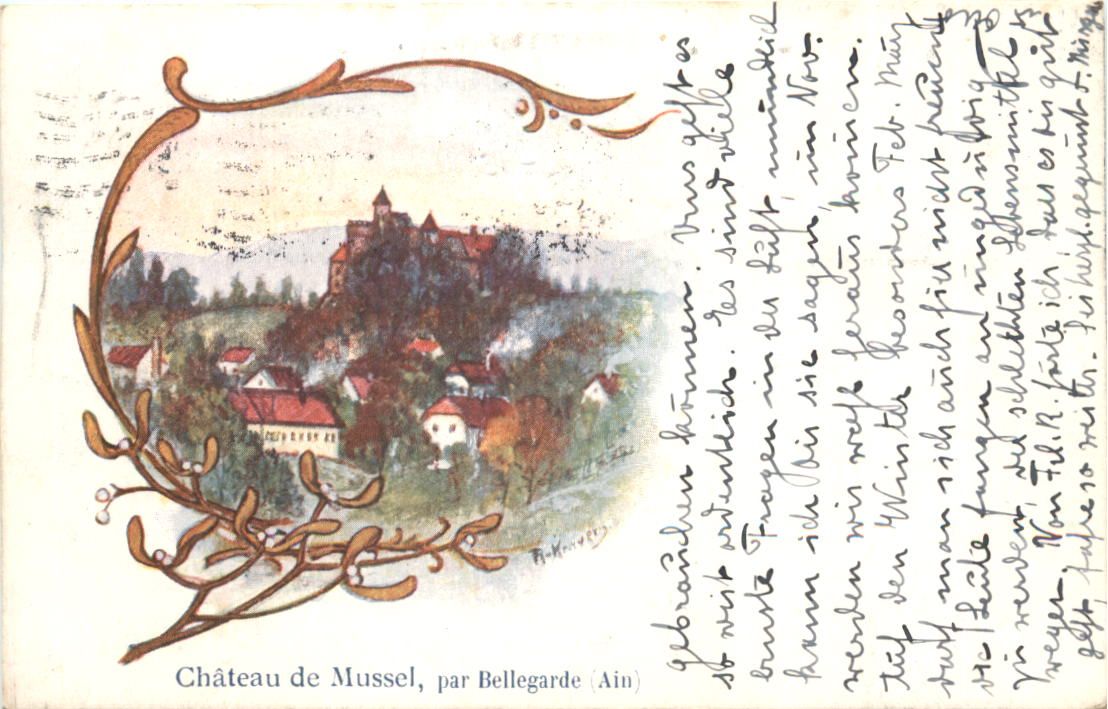 Château de Mussel, par Bellegarde (Ain)
gebrauchen können. Uns geht es
so weit ordentlich. Es sind viele
ernste Fragen in der Luft, mündlich
kann ich Dir sie sagen, im Nov.
werden wir wohl heraus kommen.
Auf den Winter besonders Feb. März
darf man sich auch hier nicht freuen
die Leute fangen an ungeduldig
zu werden, der schlechten Lebensmittel
wegen. Von Frl. R. hörte ich, dass es Dir gut
geht, fahre so weiter. Sei herzl. gegrüsst v.